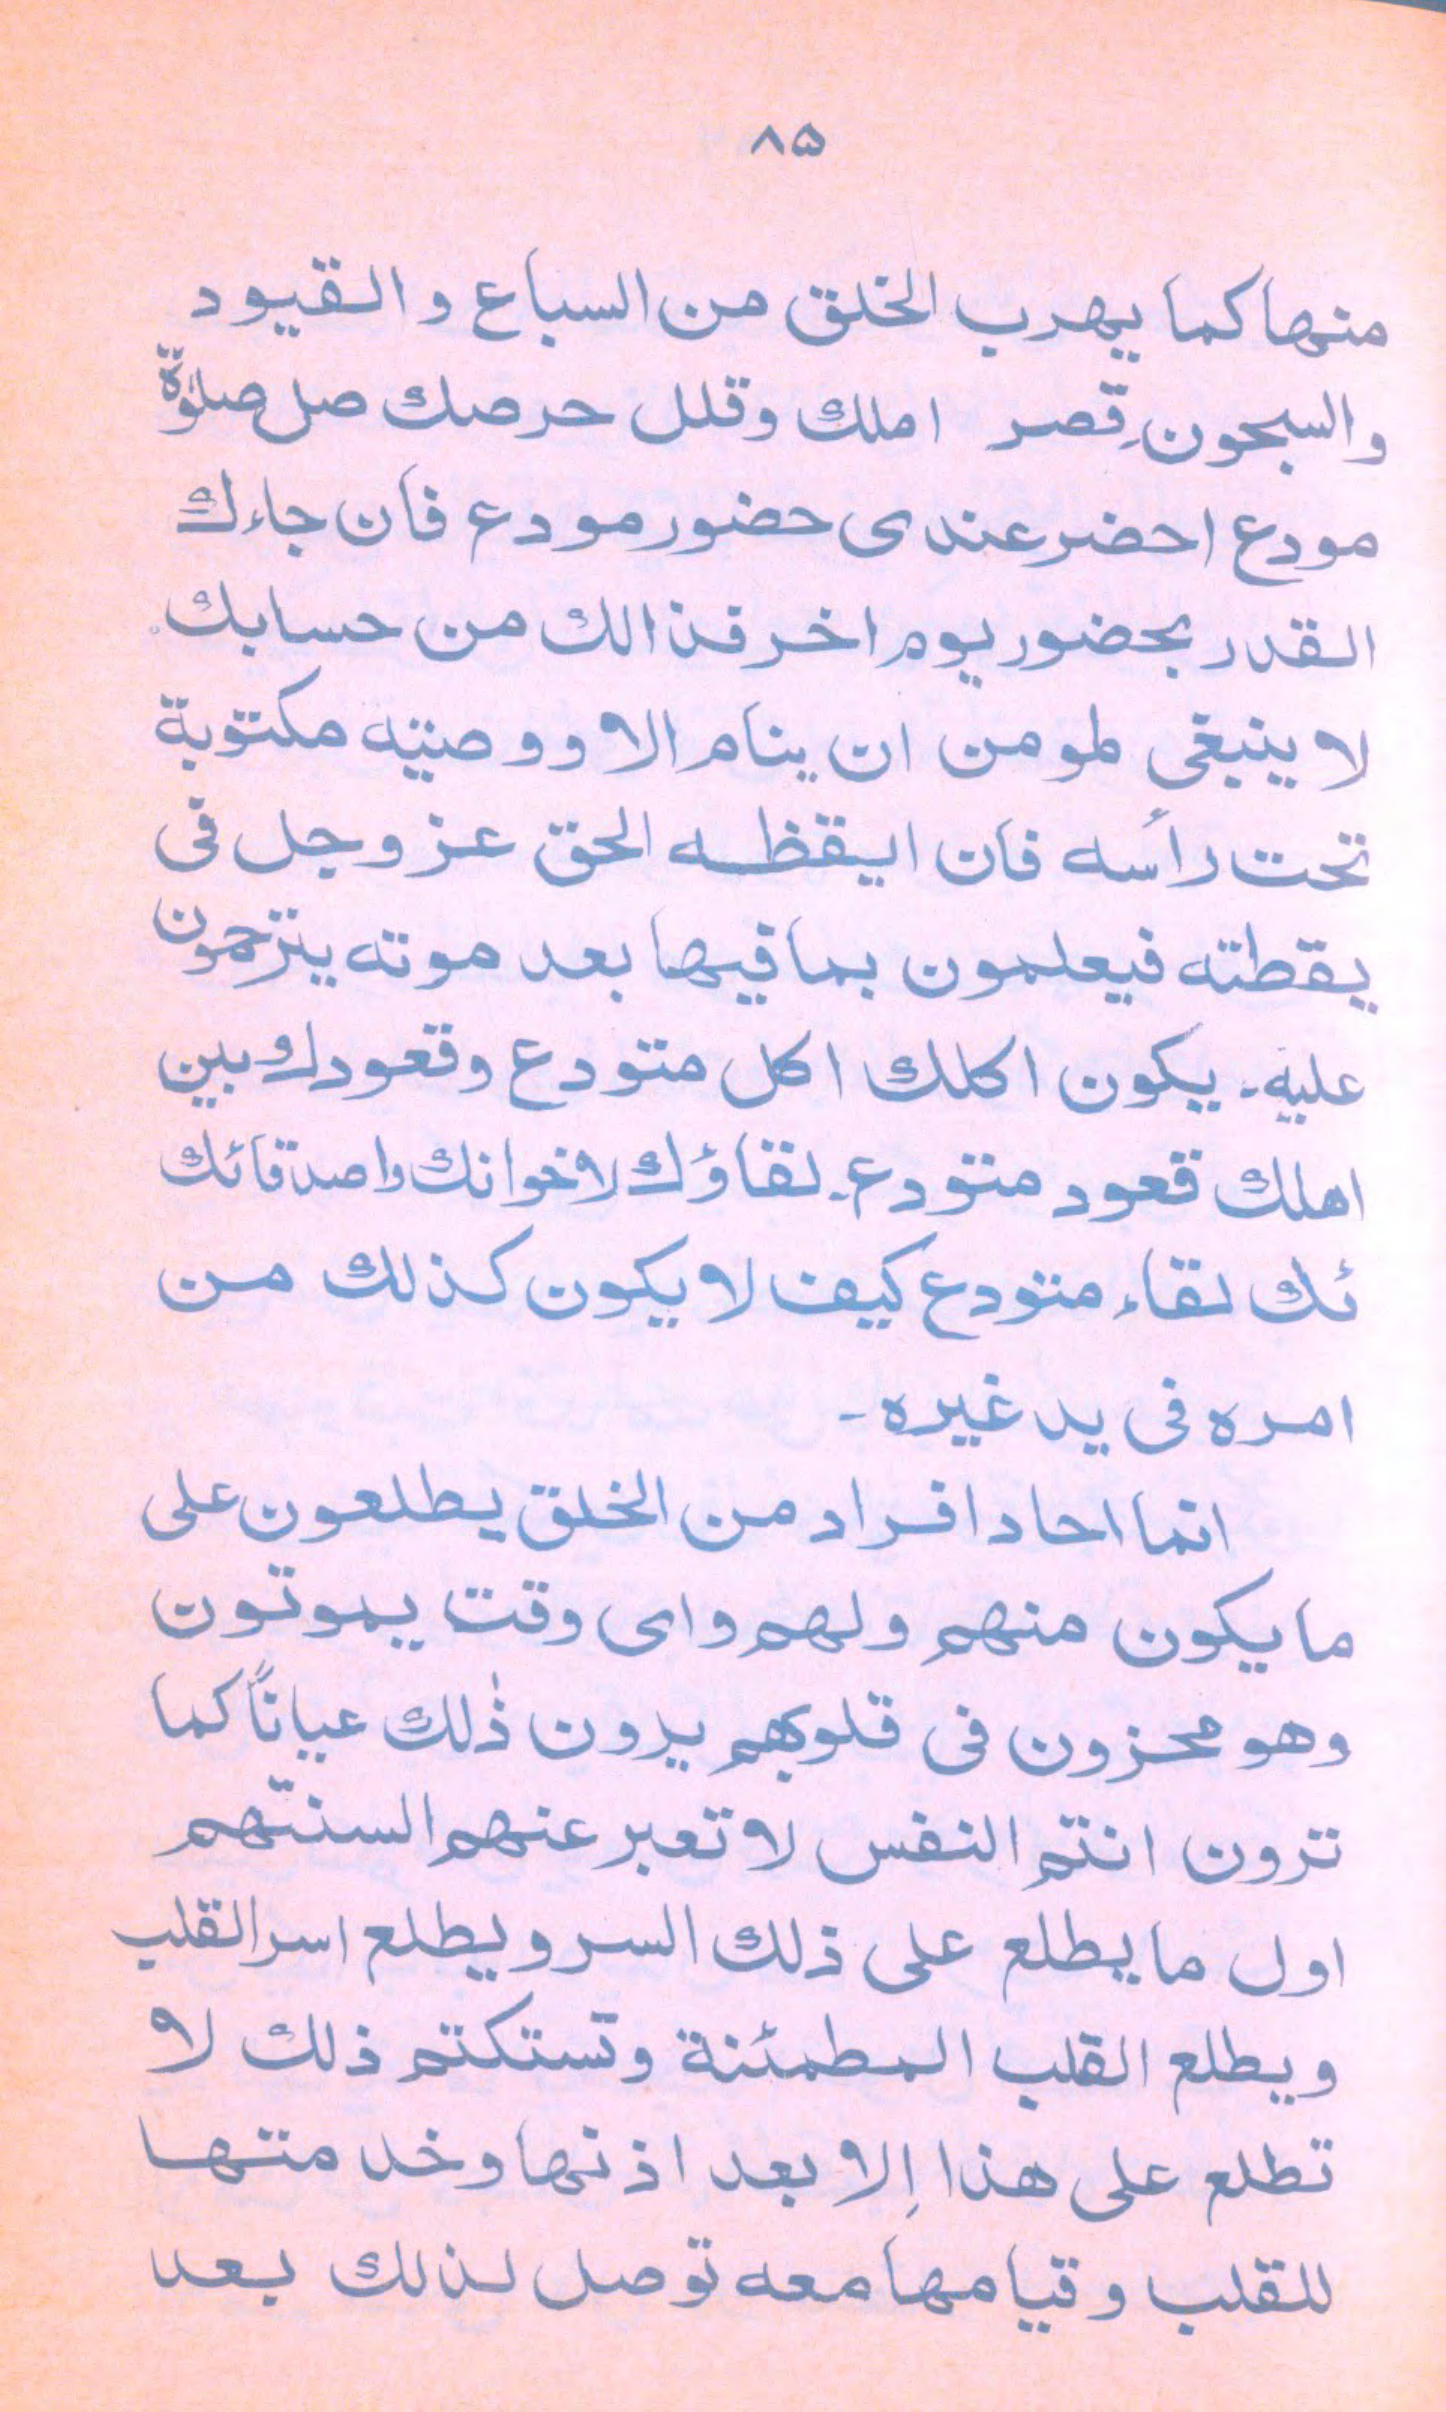 ۸۵
منها كما يهرب الخلق من السباع والقيود
والسجون۔ قصر املك وقلل حرصك صل صلوٰة
مودع احضر عندى حضور مودع فان جاءك
القدر بحضور يوم اخر فذالك من حسابك۔
لا ينبغى لمومن ان ينام الا ووصيته مكتوبة
تحت رأسه فان ايقظه الحق عز وجل فى
يقطته فيعلمون بما فيها بعد موته يترحمون
عليه۔ يكون اكلك اكل متودع وقعودك بين
اهلك قعود متودع۔ لقاؤك لاخوانك واصدقائك
ئك لقاء متودع كيف لا يكون كذلك من
امره فى يد غيره۔
انما احاد افراد من الخلق يطلعون على
ما يكون منهم ولهم واى وقت يموتون
وهو محزون فى قلوبهم يرون ذٰلك عياناً كما
ترون انتم النفس لا تعبر عنهم السنتهم
اول ما يطلع على ذلك السر ويطلع اسر القلب
ويطلع القلب المطمئنة وتستكتم ذلك لا
تطلع على هذا إلا بعد اذنها وخدمتها
للقلب وقيامها معه توصل لذلك بعد